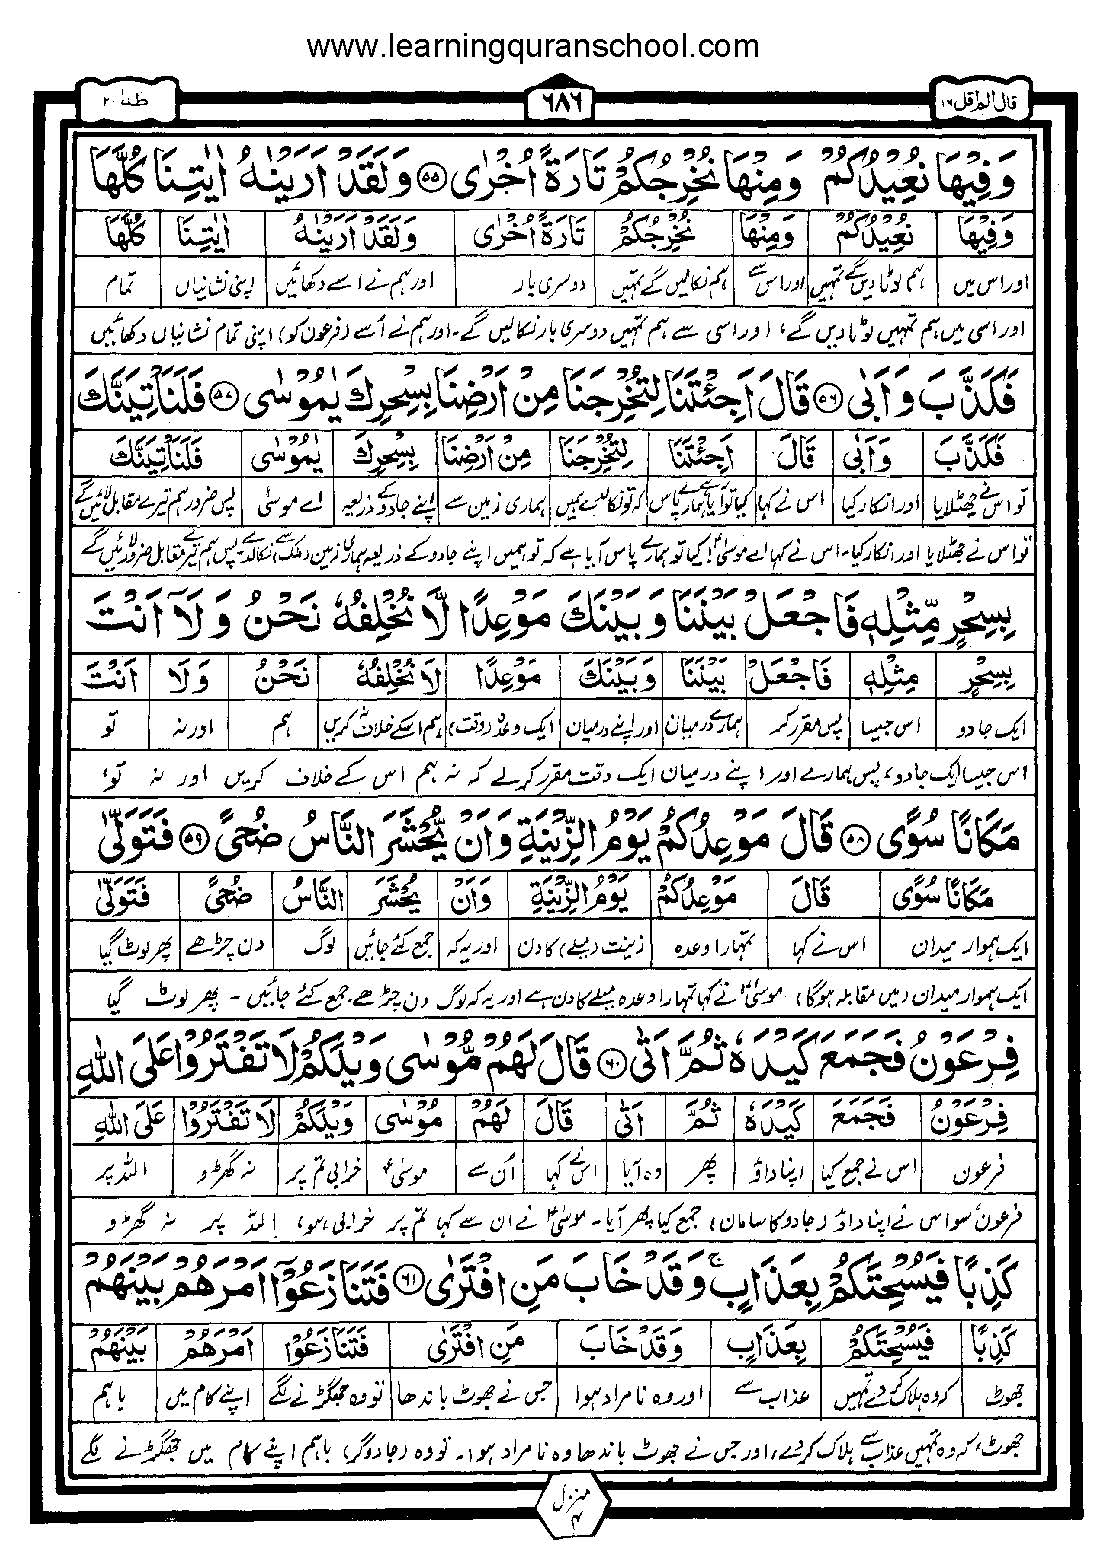 www.learningquranschool.com
قال الم اقل ۱۶
۶۸۶
طٰهٰ ۲۰
وَفِيْهَا نُعِيْدُكُمْ وَمِنْهَا نُخْرِجُكُمْ تَارَةً اُخْرٰى ۵۵ وَلَقَدْ اَرَيْنٰهُ اٰيٰتِنَا كُلَّهَا
وَفِيْهَا نُعِيْدُكُمْ وَمِنْهَا نُخْرِجُكُمْ تَارَةً اُخْرٰى وَلَقَدْ اَرَيْنٰهُ اٰيٰتِنَا كُلَّهَا
اور اس میں ہم لوٹا دیں گے تمہیں اور اس سے ہم نکالیں گے تمہیں دوسری بار اور ہم نے اسے دکھائیں اپنی نشانیاں تمام
اور اسی میں ہم تمہیں لوٹا دیں گے، اور اسی سے ہم تمہیں دوسری بار نکالیں گے۔ اور ہم نے اُسے (فرعون کو) اپنی تمام نشانیاں دکھائیں
فَكَذَّبَ وَاَبٰى ۵۶ قَالَ اَجِئْتَنَا لِتُخْرِجَنَا مِنْ اَرْضِنَا بِسِحْرِكَ يٰمُوْسٰى ۵۷ فَلَنَاْتِيَنَّكَ
فَكَذَّبَ وَاَبٰى قَالَ اَجِئْتَنَا لِتُخْرِجَنَا مِنْ اَرْضِنَا بِسِحْرِكَ يٰمُوْسٰى فَلَنَاْتِيَنَّكَ
تو اس نے جھٹلایا اور انکار کیا اس نے کہا کیا تو آیا ہمارے پاس کہ تو نکالدے ہمیں ہماری زمین سے اپنے جادو کے ذریعہ اے موسیٰ پس ضرور ہم تیرے مقابل لائیں گے
تو اس نے جھٹلایا اور انکار کیا۔ اس نے کہا اے موسیٰؑ! کیا تو ہمارے پاس آیا ہے کہ تو ہمیں اپنے جادو کے ذریعہ ہماری زمین (ملک) سے نکالدے۔ پس ہم تیرے مقابل ضرور لائیں گے
بِسِحْرٍ مِّثْلِهٖ فَاجْعَلْ بَيْنَنَا وَبَيْنَكَ مَوْعِدًا لَّا نُخْلِفُهٗ نَحْنُ وَلَآ اَنْتَ
بِسِحْرٍ مِثْلِهٖ فَاجْعَلْ بَيْنَنَا وَبَيْنَكَ مَوْعِدًا لَا نُخْلِفُهٗ نَحْنُ وَلَا اَنْتَ
ایک جادو اس جیسا پس مقرر کر ہمارے درمیان اور اپنے درمیان ایک وعدہ (وقت) ہم اسکے خلاف نہ کریں ہم اور نہ تو
اس جیسا ایک جادو، پس ہمارے اور اپنے درمیان ایک وقت مقرر کر لے کہ نہ ہم اس کے خلاف کریں اور نہ تو،
مَكَانًا سُوًى ۵۸ قَالَ مَوْعِدُكُمْ يَوْمُ الزِّيْنَةِ وَاَنْ يُّحْشَرَ النَّاسُ ضُحًى ۵۹ فَتَوَلّٰى
مَكَانًا سُوًى قَالَ مَوْعِدُكُمْ يَوْمُ الزِّيْنَةِ وَاَنْ يُحْشَرَ النَّاسُ ضُحًى فَتَوَلّٰى
ایک ہموار میدان اس نے کہا تمہارا وعدہ زینت (میلے) کا دن اور یہ کہ جمع کئے جائیں لوگ دن چڑھے پھر لوٹ گیا
ایک ہموار میدان (میں مقابلہ ہوگا) موسیٰؑ نے کہا تمہارا وعدہ میلے کا دن ہے اور یہ کہ لوگ دن چڑھے جمع کئے جائیں۔ پھر لوٹ گیا
فِرْعَوْنُ فَجَمَعَ كَيْدَهٗ ثُمَّ اَتٰى ۶۰ قَالَ لَهُمْ مُّوْسٰى وَيْلَكُمْ لَا تَفْتَرُوْا عَلَى اللّٰهِ
فِرْعَوْنُ فَجَمَعَ كَيْدَهٗ ثُمَّ اَتٰى قَالَ لَهُمْ مُوْسٰى وَيْلَكُمْ لَا تَفْتَرُوْا عَلَى اللّٰهِ
فرعون اس نے جمع کیا اپنا داؤ پھر وہ آیا اس نے کہا اُن سے موسیٰؑ خرابی تم پر نہ گھڑو اللہ پر
فرعون سو اس نے اپنا داؤ (جادو کا سامان) جمع کیا پھر آیا۔ موسیٰؑ نے ان سے کہا تم پر خرابی ہو، اللہ پر نہ گھڑو
كَذِبًا فَيُسْحِتَكُمْ بِعَذَابٍ ۚ وَقَدْ خَابَ مَنِ افْتَرٰى ۶۱ فَتَنَازَعُوْٓا اَمْرَهُمْ بَيْنَهُمْ
كَذِبًا فَيُسْحِتَكُمْ بِعَذَابٍ وَقَدْ خَابَ مَنِ افْتَرٰى فَتَنَازَعُوْا اَمْرَهُمْ بَيْنَهُمْ
جھوٹ کہ وہ ہلاک کر دے تمہیں عذاب سے اور وہ نامراد ہوا جس نے جھوٹ باندھا تو وہ جھگڑنے لگے اپنے کام میں باہم
جھوٹ، کہ وہ تمہیں عذاب سے ہلاک کر دے، اور جس نے جھوٹ باندھا وہ نامراد ہوا۔ تو وہ (جادوگر) باہم اپنے کام میں جھگڑنے لگے
منزل ۴